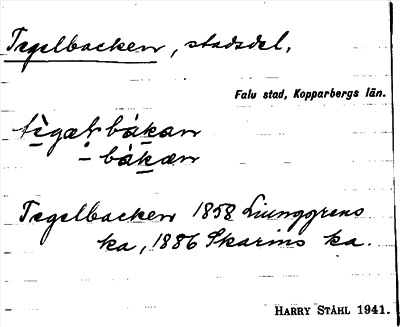 Tegelbacken, stadsdel.
Falu stad, Kopparbergs län.
tìgæḷbákan
- bákæn
Tegelbacken 1858 Ljunggrens
ka, 1886 Skarins ka.
HARRY STÅHL 1941.